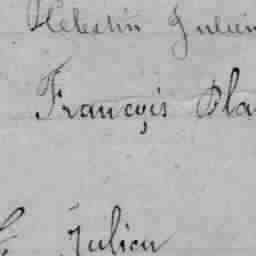 Célestin Julien
François Pla
Julien